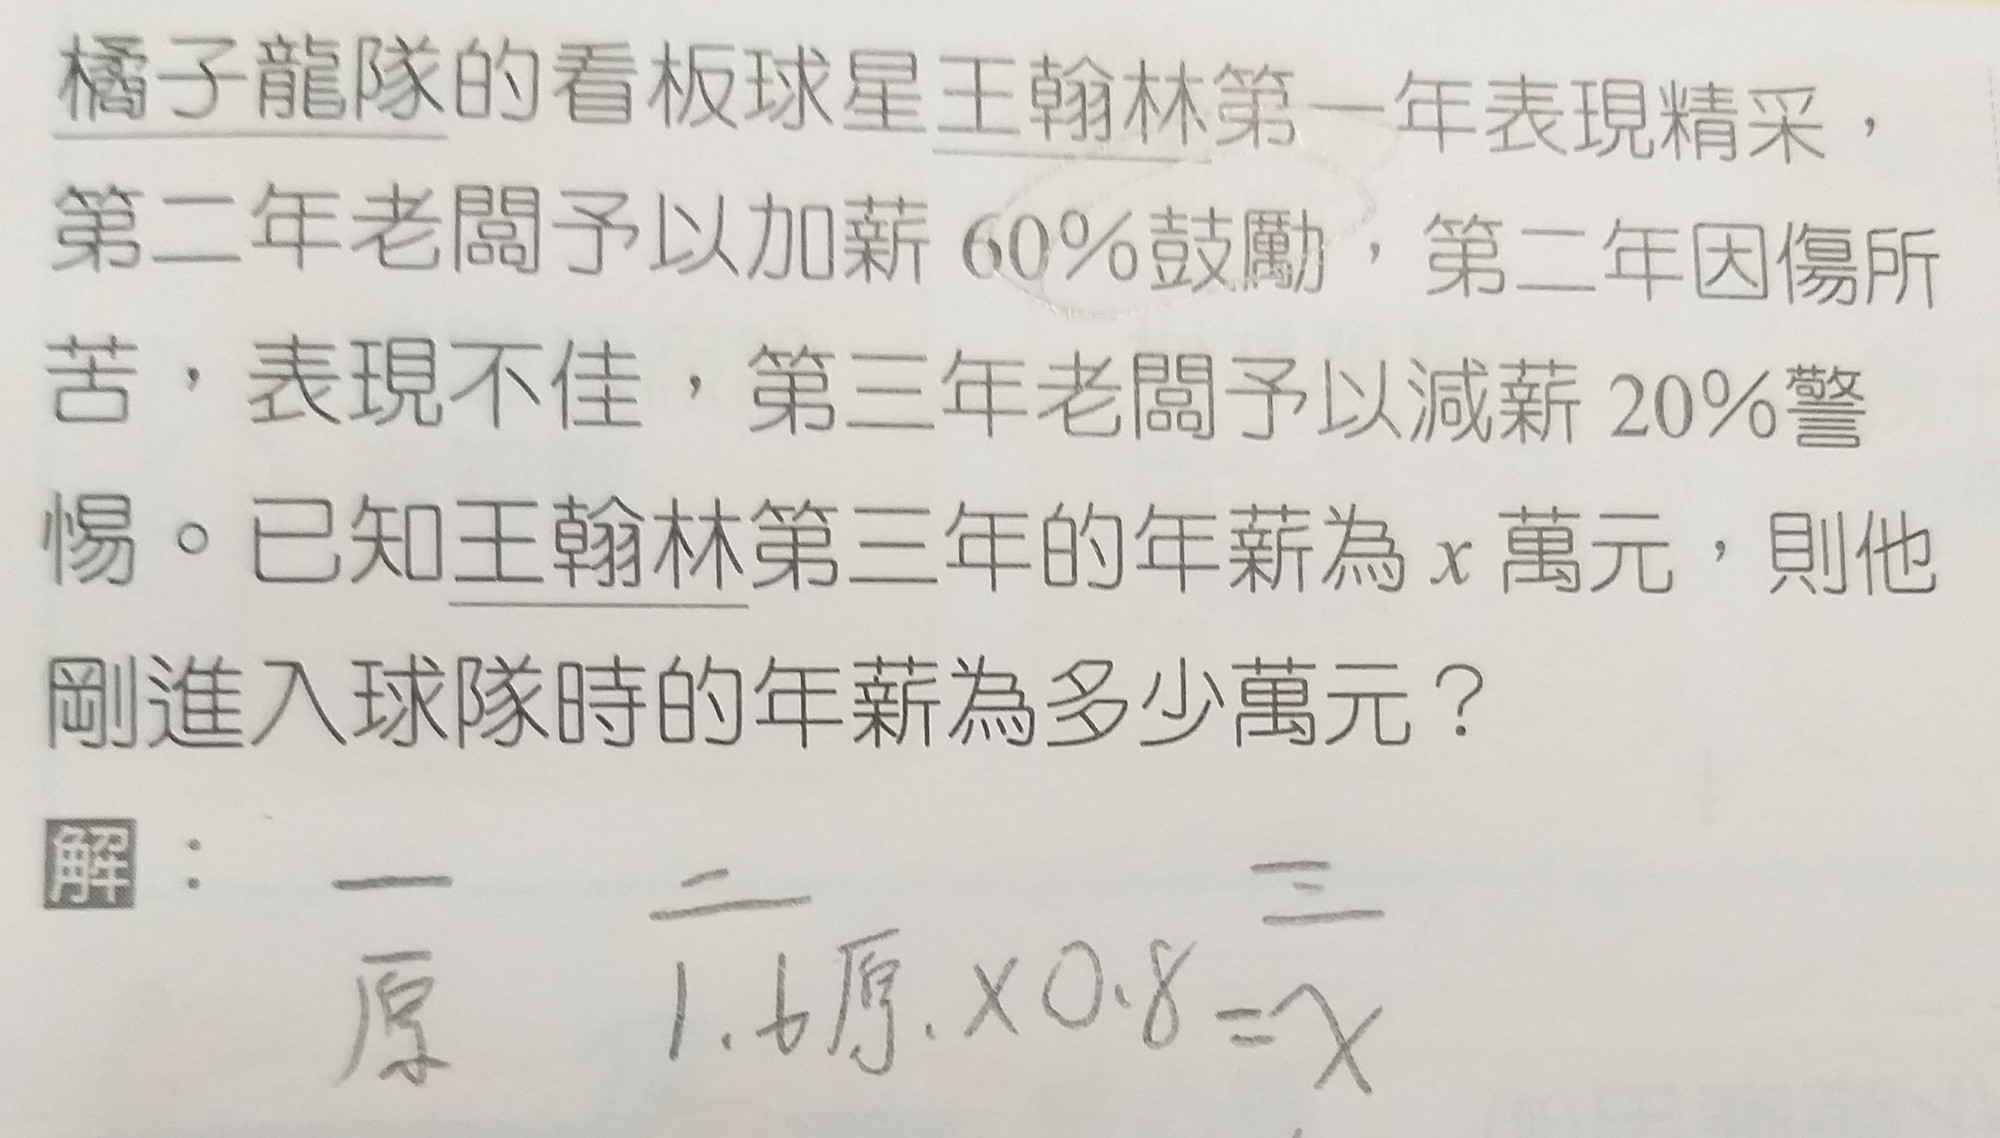 橘子龍隊的看板球星王翰林第一年表現精采，
第二年老闆予以加薪 60%鼓勵，第二年因傷所
苦，表現不佳，第三年老闆予以減薪 20%警
惕。已知王翰林第三年的年薪為 x 萬元，則他
剛進入球隊時的年薪為多少萬元？
解：一 二 三
原 1.6原.×0.8=x